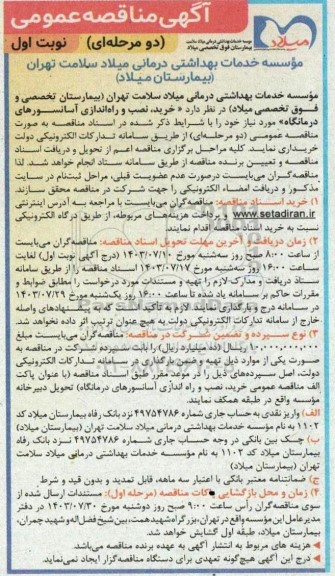 آگهی مناقصه عمومی
(دو مرحله‌ای) نوبت اول
میلاد
موسسه خدمات بهداشتی درمانی میلاد سلامت
بیمارستان فوق تخصصی میلاد
مؤسسه خدمات بهداشتی درمانی میلاد سلامت تهران
(بیمارستان میلاد)
مؤسسه خدمات بهداشتی درمانی میلاد سلامت تهران (بیمارستان تخصصی و
فوق تخصصی میلاد) در نظر دارد «خرید، نصب و راه‌اندازی آسانسورهای
درمانگاه» مورد نیاز خود را با شرایط ذکر شده در اسناد مناقصه به صورت
مناقصه عمومی (دو مرحله‌ای) از طریق سامانه تدارکات الکترونیکی دولت
خریداری نمایند. کلیه مراحل برگزاری مناقصه اعم از تحویل و دریافت اسناد
مناقصه و تعیین برنده مناقصه از طریق سامانه ستاد انجام خواهد شد. لذا
مناقصه‌گران می‌بایست درصورت عدم عضویت قبلی، مراحل ثبت‌نام در سایت
مذکور و دریافت امضاء الکترونیکی را جهت شرکت در مناقصه محقق سازند.
۱) خرید اسناد مناقصه: مناقصه‌گران می‌بایست با مراجعه به آدرس اینترنتی
www.setadiran.ir و پرداخت هزینه‌های مربوطه، از طریق درگاه الکترونیکی
نسبت به خرید اسناد مناقصه اقدام نمایند.
۲) زمان دریافت و آخرین مهلت تحویل اسناد مناقصه: مناقصه‌گران می‌بایست
از ساعت ۸:۰۰ صبح روز سه‌شنبه مورخ ۱۴۰۳/۰۷/۱۰ (درج آگهی نوبت اول) لغایت
ساعت ۱۶:۰۰ روز سه‌شنبه مورخ ۱۴۰۳/۰۷/۱۷ اسناد مناقصه را از طریق سامانه
ستاد دریافت و مدارک لازم را تهیه و مستندات مورد درخواست را مطابق ضوابط و
مقررات حاکم بر سامانه یاد شده تا ساعت ۱۶:۰۰ روز یک‌شنبه مورخ ۱۴۰۳/۰۷/۲۹
در سامانه درج و بارگذاری نمایند. لازم به تأکید است که به پیشنهادهای واصله
خارج از سامانه تدارکات الکترونیکی دولت به هیچ عنوان ترتیب اثر داده نخواهد شد.
۳) نوع سپرده و تضمین شرکت در مناقصه: مناقصه‌گران می‌بایست مبلغ
۱۰.۰۰۰.۰۰۰.۰۰۰ ریال (ده میلیارد ریال) را بابت سپرده شرکت در مناقصه به
صورت یکی از موارد ذیل تهیه و ضمن بارگذاری در سامانه تدارکات الکترونیکی
دولت، اصل سپرده‌های ذیل را در موعد مقرر طبق اسناد مناقصه (با عنوان پاکت
الف مناقصه عمومی خرید، نصب و راه اندازی آسانسورهای درمانگاه) تحویل دبیرخانه
مؤسسه واقع در طبقه همکف نمایند.
الف) واریز نقدی به حساب جاری شماره ۴۹۷۵۴۷۸۶ نزد بانک رفاه بیمارستان میلاد کد
۱۱۰۲ به نام مؤسسه خدمات بهداشتی درمانی میلاد سلامت تهران (بیمارستان میلاد)
ب) چک بین بانکی در وجه حساب جاری شماره ۴۹۷۵۴۷۸۶ نزد بانک رفاه
بیمارستان میلاد کد ۱۱۰۲ به نام مؤسسه خدمات بهداشتی درمانی میلاد سلامت
تهران (بیمارستان میلاد)
ج) ضمانتنامه معتبر بانکی با اعتبار سه ماهه، قابل تمدید و بدون قید و شرط
۴) زمان و محل بازگشایی پاکات مناقصه (مرحله اول): مستندات ارسال شده از
سوی مناقصه‌گران رأس ساعت ۹:۰۰ صبح روز دوشنبه مورخ ۱۴۰۳/۰۷/۳۰ در دفتر
مدیرعامل این مؤسسه واقع در تهران، بزرگراه شهید همت، بین شیخ فضل‌اله و شهید چمران،
بیمارستان میلاد، طبقه اول گشایش خواهد شد.
هزینه های مربوط به انتشار آگهی به عهده برنده مناقصه می‌باشد.
درج این آگهی هیچ‌گونه تعهدی برای دستگاه مناقصه‌گزار ایجاد نمی‌نماید.